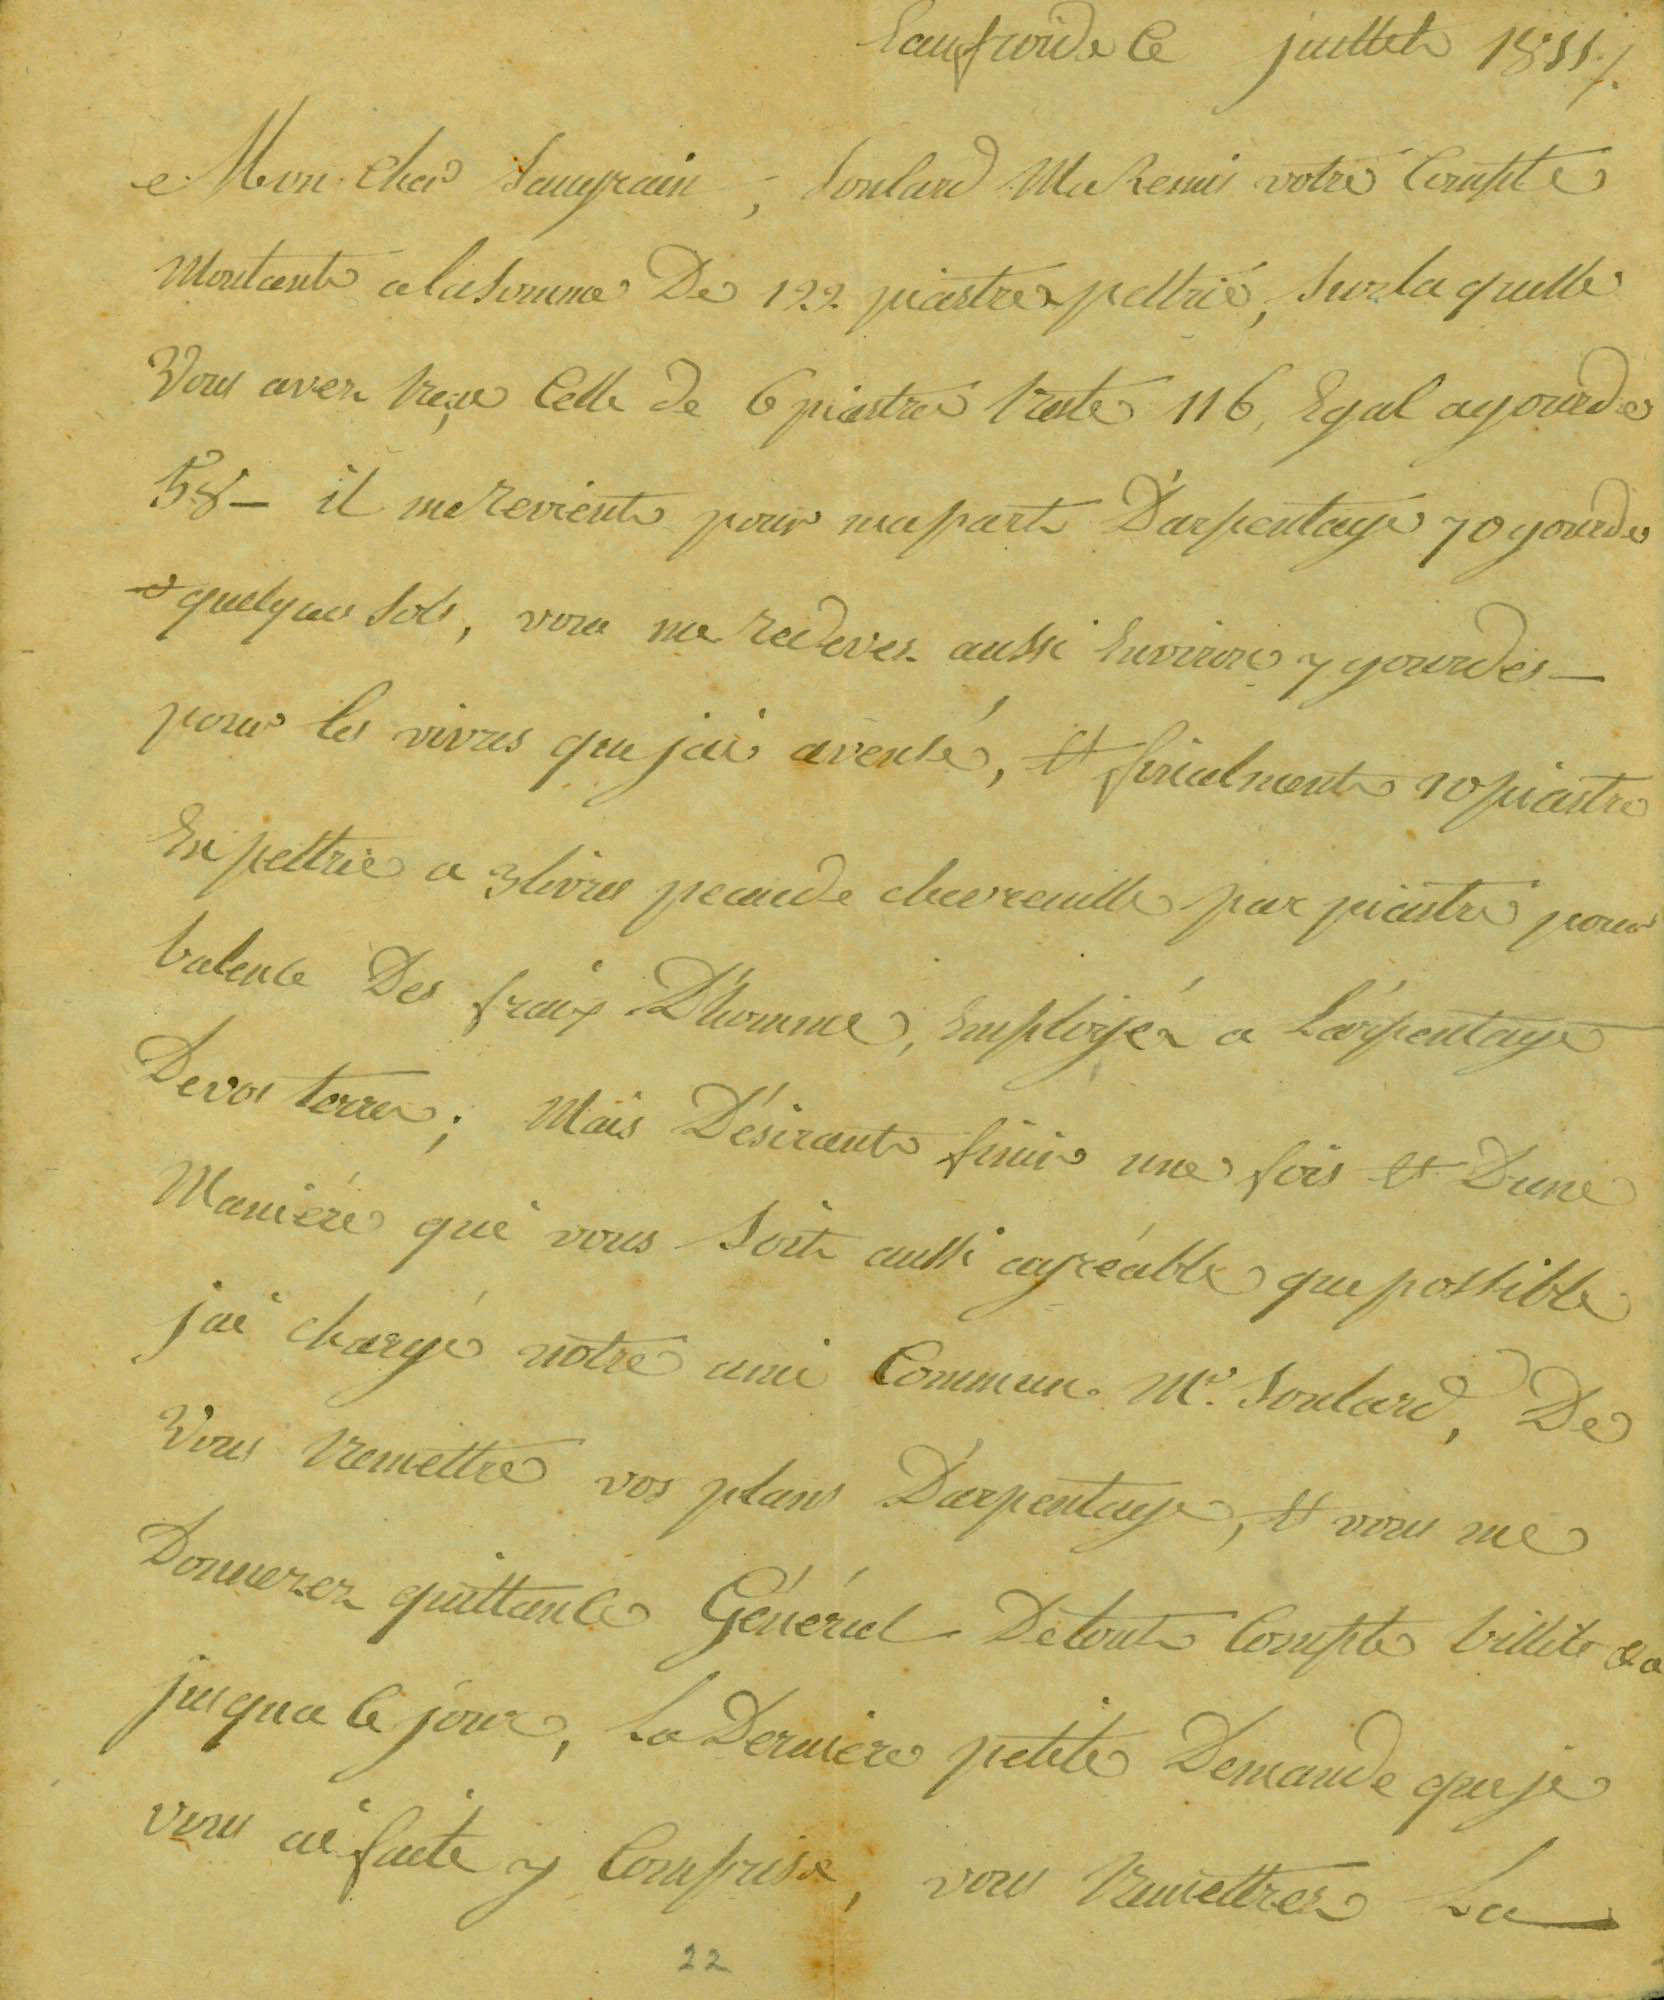 Eaufroide Ce juillet 1811 /.
Mon Cher Saugrain ; Soulard Ma Remis votre Compte
Montant a la somme De 122 piastres pettrie, sur la quelle
Vous avez reçue Celle de 6 piastres reste 116, Egal a gourdes
58 — il me Revient pour ma part D'arpentage 70 gourdes
et quelques sols, vous me Redevez aussi Environ 7 gourdes —
pour les vivres que jai avensé, et finalment 10 piastre
En pettrie a 3 livres peau de chevreuille par piastre pour
balence Des fraix D'homme, Employéz a L'arpentage
De vos terres ; Mais Désirant finir une fois et Dune
Maniére qui vous Soit aussi agréable que possible
jai chargé notre ami Commun Mr. Soulard, De
Vous Remettre vos plans D'arpentage, et vous me
Donnerez quittance Général De tout Compte billets &a
jusqua Ce jour, La Derniere petite Demande que je
vous ai faite y Comprise, vous Remettrez La
22